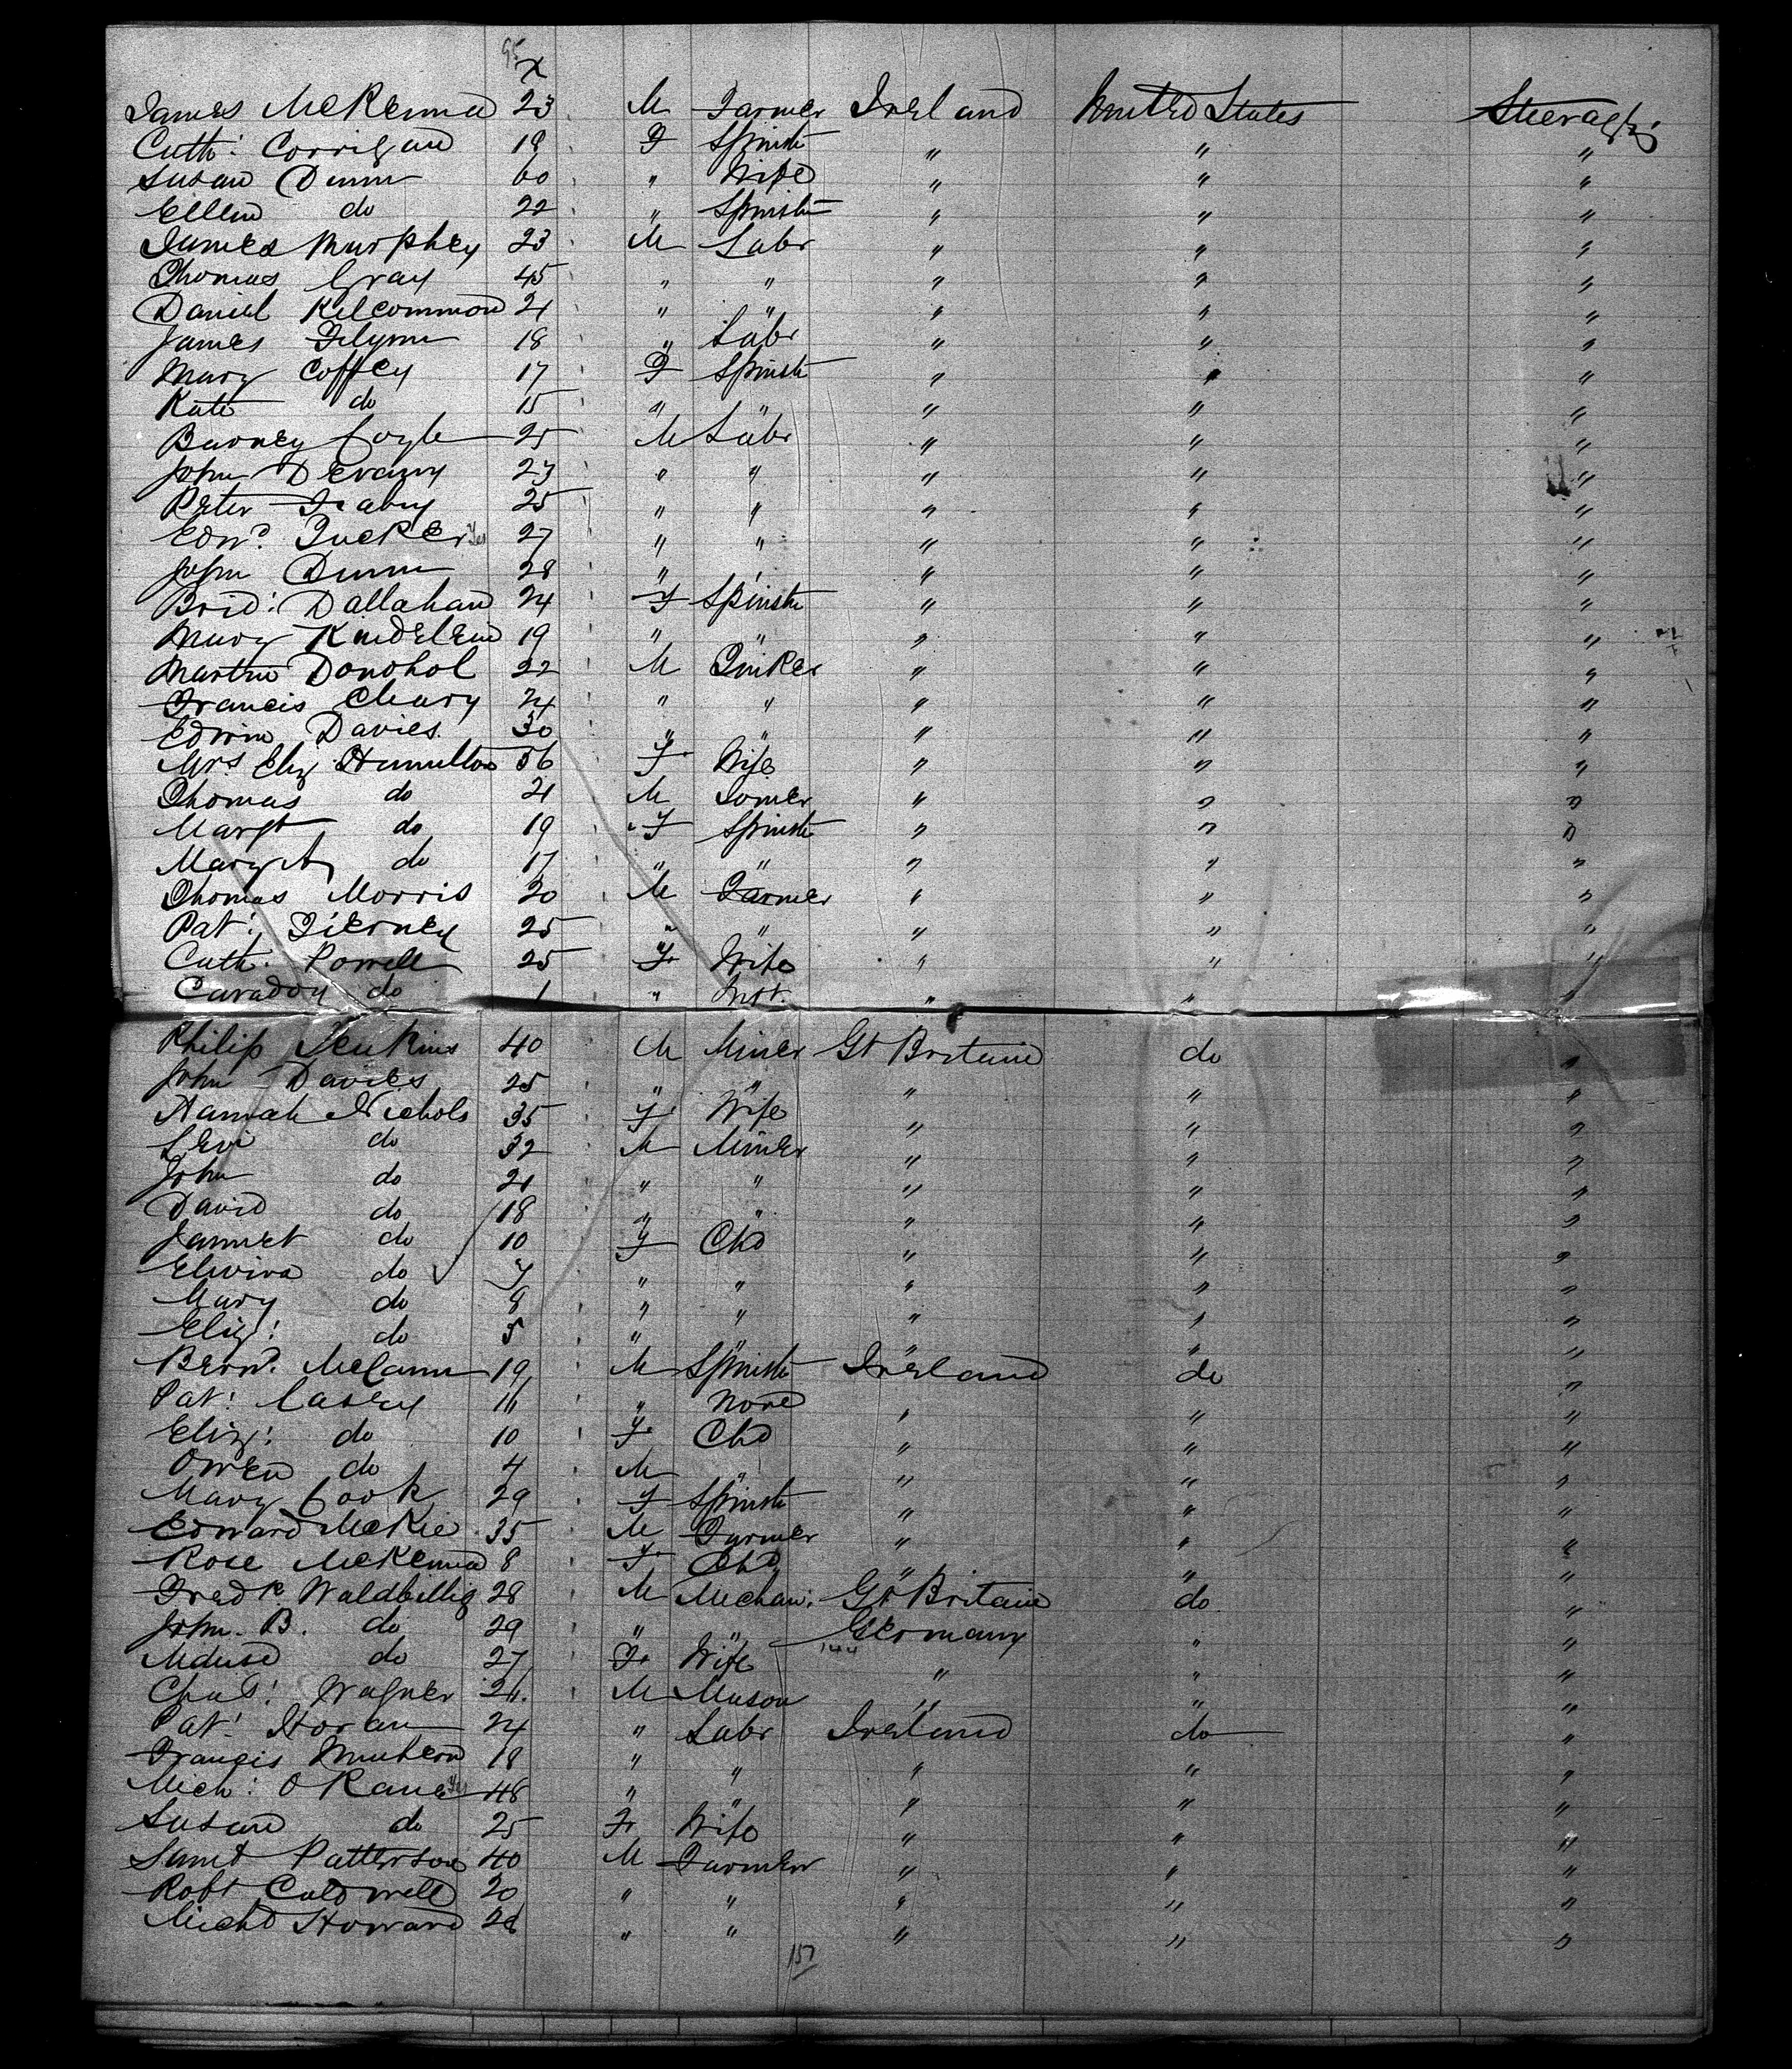 95
x
James McKenna 23 M Farmer Ireland United States Steerage
Cath: Corrigan 18 F Spinstr " " "
Susan Dunn 60 " Wife " " "
Ellen do 22 " Spinstr " " "
James Murphey 23 M Labr " " "
Thomas Gray 45 " " " " "
Daniel Kilcommon 21 " " " " "
James Flynn 18 " Labr " " "
Mary Coffey 17 F Spinstr " " "
Kate do 15 " " " " "
Barney Coyle 25 M Labr " " "
John Devany 23 " " " " "
Peter 25 " " " " "
Edwd. Tucker Yes 27 " " " " "
John Dunn 28 " " " " "
Brid: Dallahan 24 F Spinstr " " "
Mary Kindelein 19 " " " " "
Martin Donohol 22 M Tinker " " "
Francis Cleary 24 " " " " "
Edwin Davies 30 " " " " "
Mrs. Eliz Hamilton 56 F Wife " " "
Thomas do 21 M " " "
Margt do 19 F Spinstr " " "
Mary A do 17 " " " " "
Thomas Morris 20 M Farmer " " "
Pat: Tierney 25 " " " " "
Cath: Powell 25 F Wife " " "
Caradoy do 1 " Inft. " " "
Philip Jenkins 40 M Miner Gt Britain do "
John Davies 25 " " " " "
Hannah Nichols 35 F Wife " " "
Levi do 32 M Miner " " "
John do 21 " " " " "
David do 18 " " " " "
Jannet do 10 F Chd " " "
Elwira do 7 " " " " "
Mary do 8 " " " " "
Eliz: do 5 " " " " "
Bernd. McCann 19 M Spinstr Ireland do "
Pat: Casey 11 " None " " "
Eliz: do 10 F Chd " " "
Owen do 4 M " " " "
Mary Cook 29 F Spinstr " " "
Edward McKie 35 M Farmer " " "
Rose McKenna 8 F Chd " " "
Fredk. Waldbillig 28 M Mechan. Gt Britain do "
John. B. do 29 " " Germany " "
do 27 F Wife 144 " " "
Chas: Wagner 26. M Mason " " "
Pat: Horan 24 " Labr Ireland do "
Francis 18 " " " " "
Mich: O Kane Yes 48 " " " " "
Susan do 25 F Wife " " "
Saml Patterson 40 M Farmer " " "
Robt Caldwell 20 " " " " "
Michl Howard 26 " " " " "
157